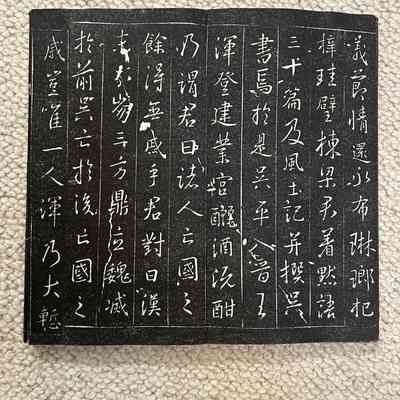 義節情還永布琳瑯杞
梓珪璧棟梁君著默語
三十篇及風土記并撰吳
書焉於是吳平入晉王
渾登建業宮釃酒既酣
乃謂君曰諸人亡國之
餘得無慼乎君對曰漢
末分崩三方鼎立魏滅
於前吳亡於後亡國之
慼豈惟一人渾乃大慙